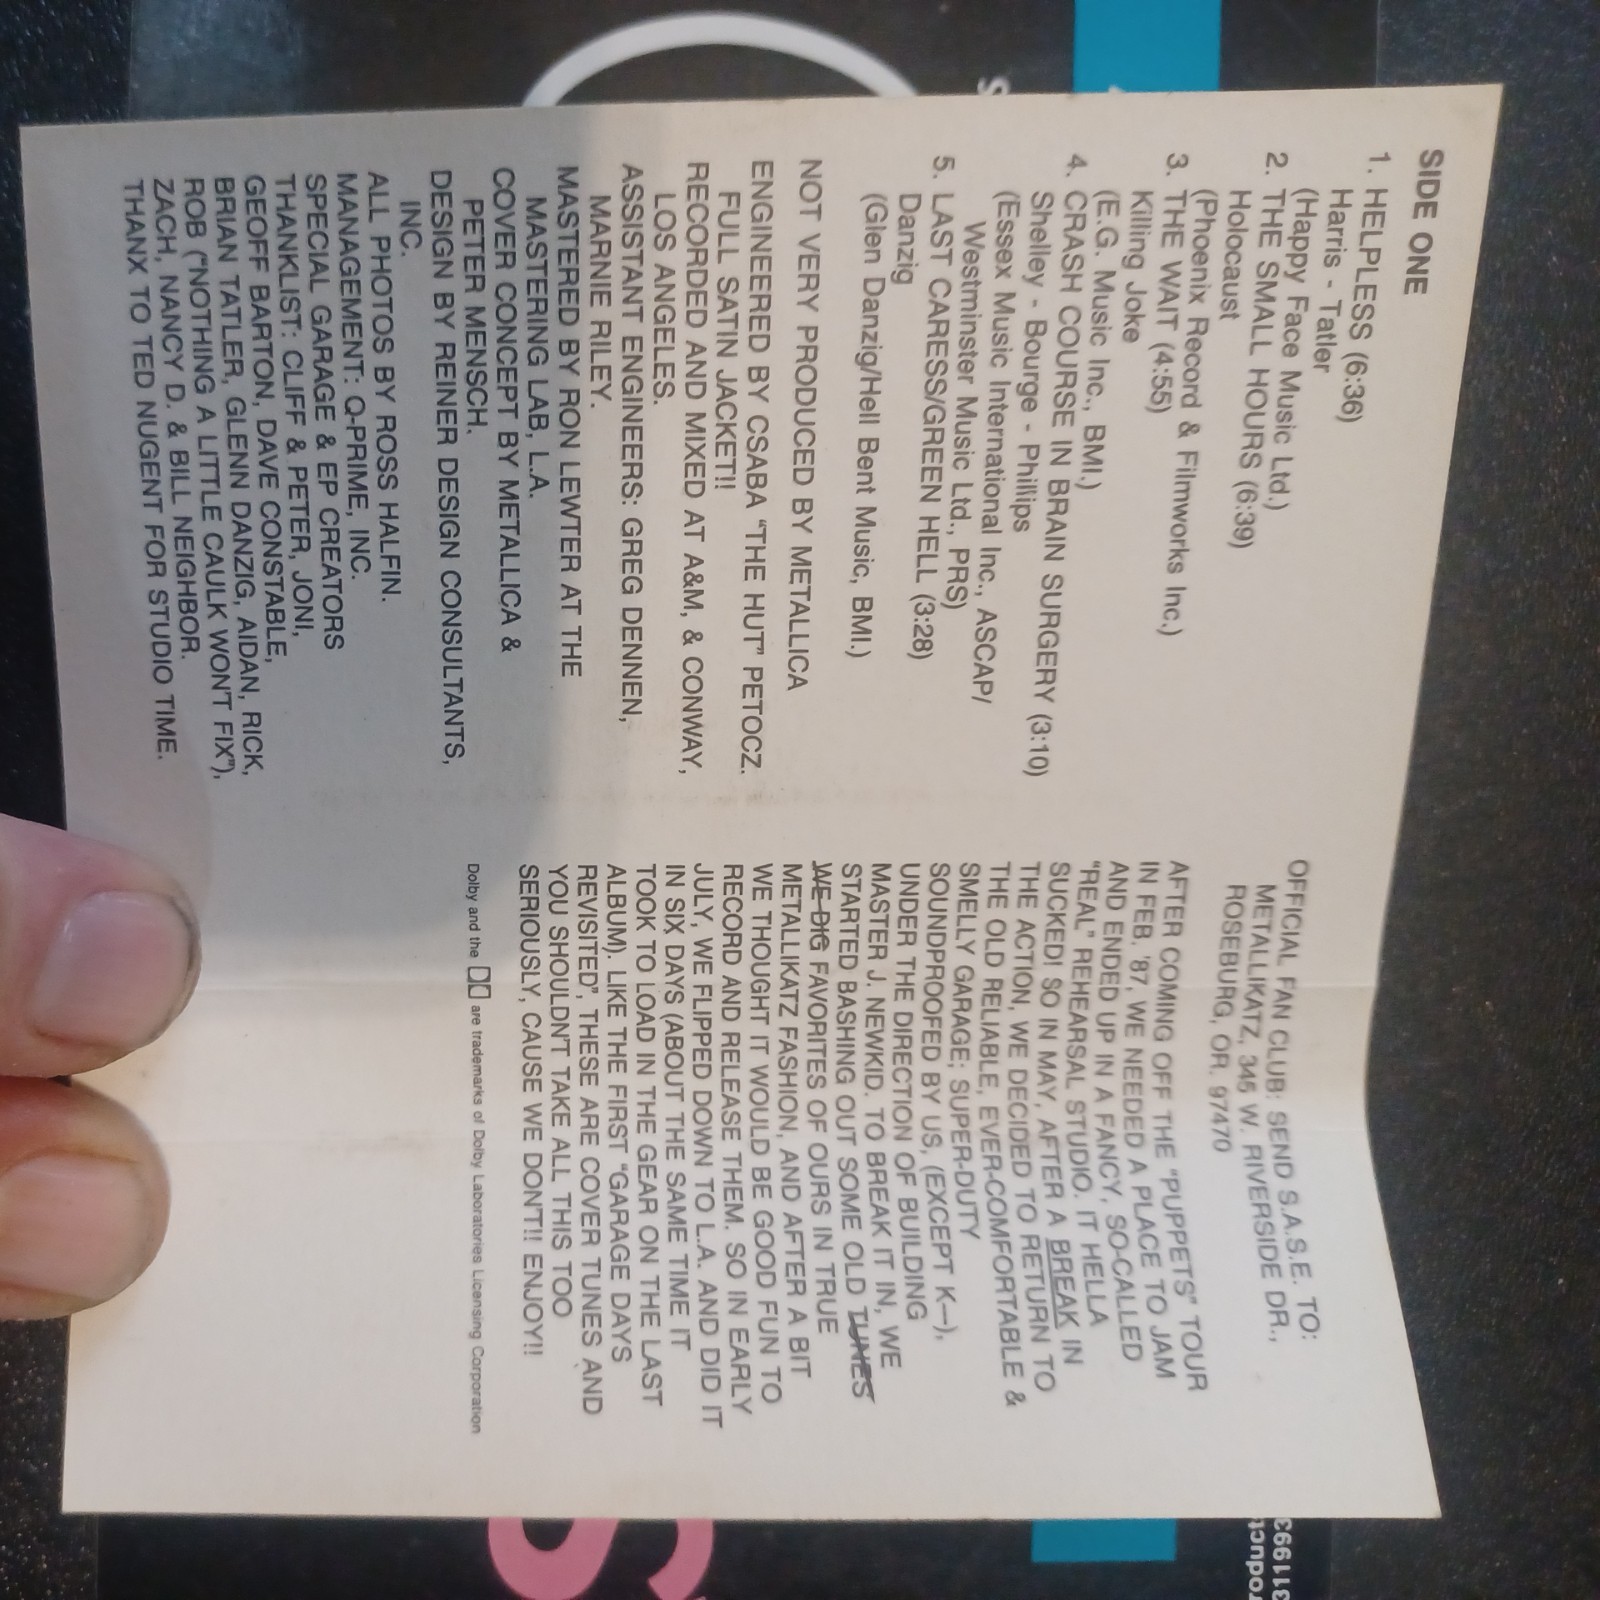 SIDE ONE
1. HELPLESS (6:36)
Harris - Tatler
(Happy Face Music Ltd.)
2. THE SMALL HOURS (6:39)
Holocaust
(Phoenix Record & Filmworks Inc.)
3. THE WAIT (4:55)
Killing Joke
(E.G. Music Inc., BMI.)
4. CRASH COURSE IN BRAIN SURGERY (3:10)
Shelley - Bourge - Phillips
(Essex Music International Inc., ASCAP/
Westminster Music Ltd., PRS)
5. LAST CARESS/GREEN HELL (3:28)
Danzig
(Glen Danzig/Hell Bent Music, BMI.)
NOT VERY PRODUCED BY METALLICA
ENGINEERED BY CSABA "THE HUT" PETOCZ.
FULL SATIN JACKET!!
RECORDED AND MIXED AT A&M, & CONWAY,
LOS ANGELES.
ASSISTANT ENGINEERS: GREG DENNEN,
MARNIE RILEY.
MASTERED BY RON LEWTER AT THE
MASTERING LAB, L.A.
COVER CONCEPT BY METALLICA &
PETER MENSCH.
DESIGN BY REINER DESIGN CONSULTANTS,
INC.
ALL PHOTOS BY ROSS HALFIN.
MANAGEMENT: Q-PRIME, INC.
SPECIAL GARAGE & EP CREATORS
THANKLIST: CLIFF & PETER, JONI,
GEOFF BARTON, DAVE CONSTABLE,
BRIAN TATLER, GLENN DANZIG, AIDAN, RICK,
ROB ("NOTHING A LITTLE CAULK WON'T FIX"),
ZACH, NANCY D. & BILL NEIGHBOR.
THANX TO TED NUGENT FOR STUDIO TIME.
OFFICIAL FAN CLUB: SEND S.A.S.E. TO:
METALLIKATZ, 345 W. RIVERSIDE DR.,
ROSEBURG, OR. 97470
AFTER COMING OFF THE "PUPPETS" TOUR
IN FEB. '87, WE NEEDED A PLACE TO JAM
AND ENDED UP IN A FANCY, SO-CALLED
"REAL" REHEARSAL STUDIO. IT HELLA
SUCKED! SO IN MAY, AFTER A BREAK IN
THE ACTION, WE DECIDED TO RETURN TO
THE OLD RELIABLE, EVER-COMFORTABLE &
SMELLY GARAGE; SUPER-DUTY
SOUNDPROOFED BY US, (EXCEPT K—),
UNDER THE DIRECTION OF BUILDING
MASTER J. NEWKID. TO BREAK IT IN, WE
STARTED BASHING OUT SOME OLD TUNES
WE DIG FAVORITES OF OURS IN TRUE
METALLIKATZ FASHION, AND AFTER A BIT
WE THOUGHT IT WOULD BE GOOD FUN TO
RECORD AND RELEASE THEM. SO IN EARLY
JULY, WE FLIPPED DOWN TO L.A. AND DID IT
IN SIX DAYS (ABOUT THE SAME TIME IT
TOOK TO LOAD IN THE GEAR ON THE LAST
ALBUM). LIKE THE FIRST "GARAGE DAYS
REVISITED", THESE ARE COVER TUNES AND
YOU SHOULDN'T TAKE ALL THIS TOO
SERIOUSLY, CAUSE WE DON'T!! ENJOY!!!
Dolby and the are trademarks of Dolby Laboratories Licensing Corporation